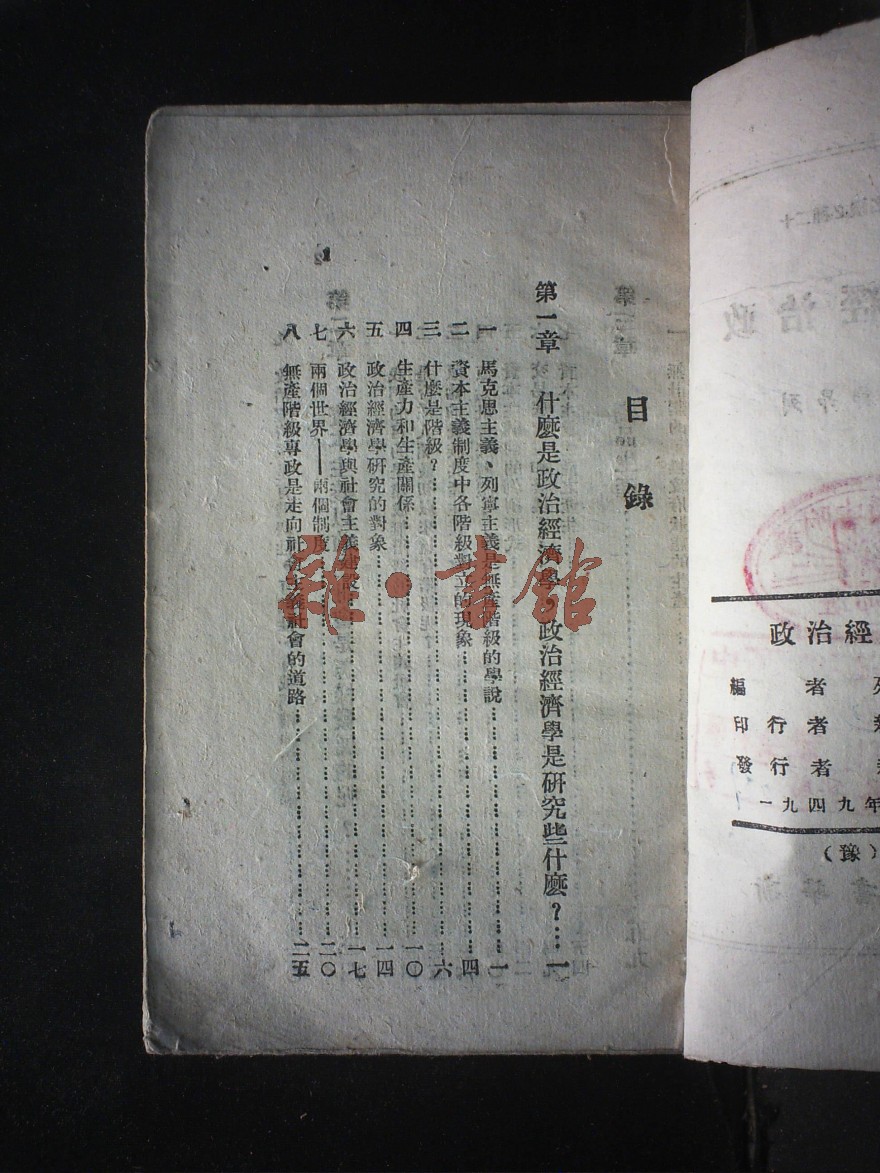 目錄
第一章 什麼是政治經濟學，政治經濟學是研究些什麼？…一
一 馬克思主義、列寧主義是無產階級的學說……一
二 資本主義制度中各階級對立的現象……四
三 什麼是階級？……六
四 生產力和生產關係……一〇
五 政治經濟學研究的對象……一四
六 政治經濟學與社會主義建設……一七
七 兩個世界——兩個制度……二〇
八 無產階級專政是走向社會主義社會的道路……二五
雜·書館
政治經
編者
印行者
發行者
一九四九年
（豫）